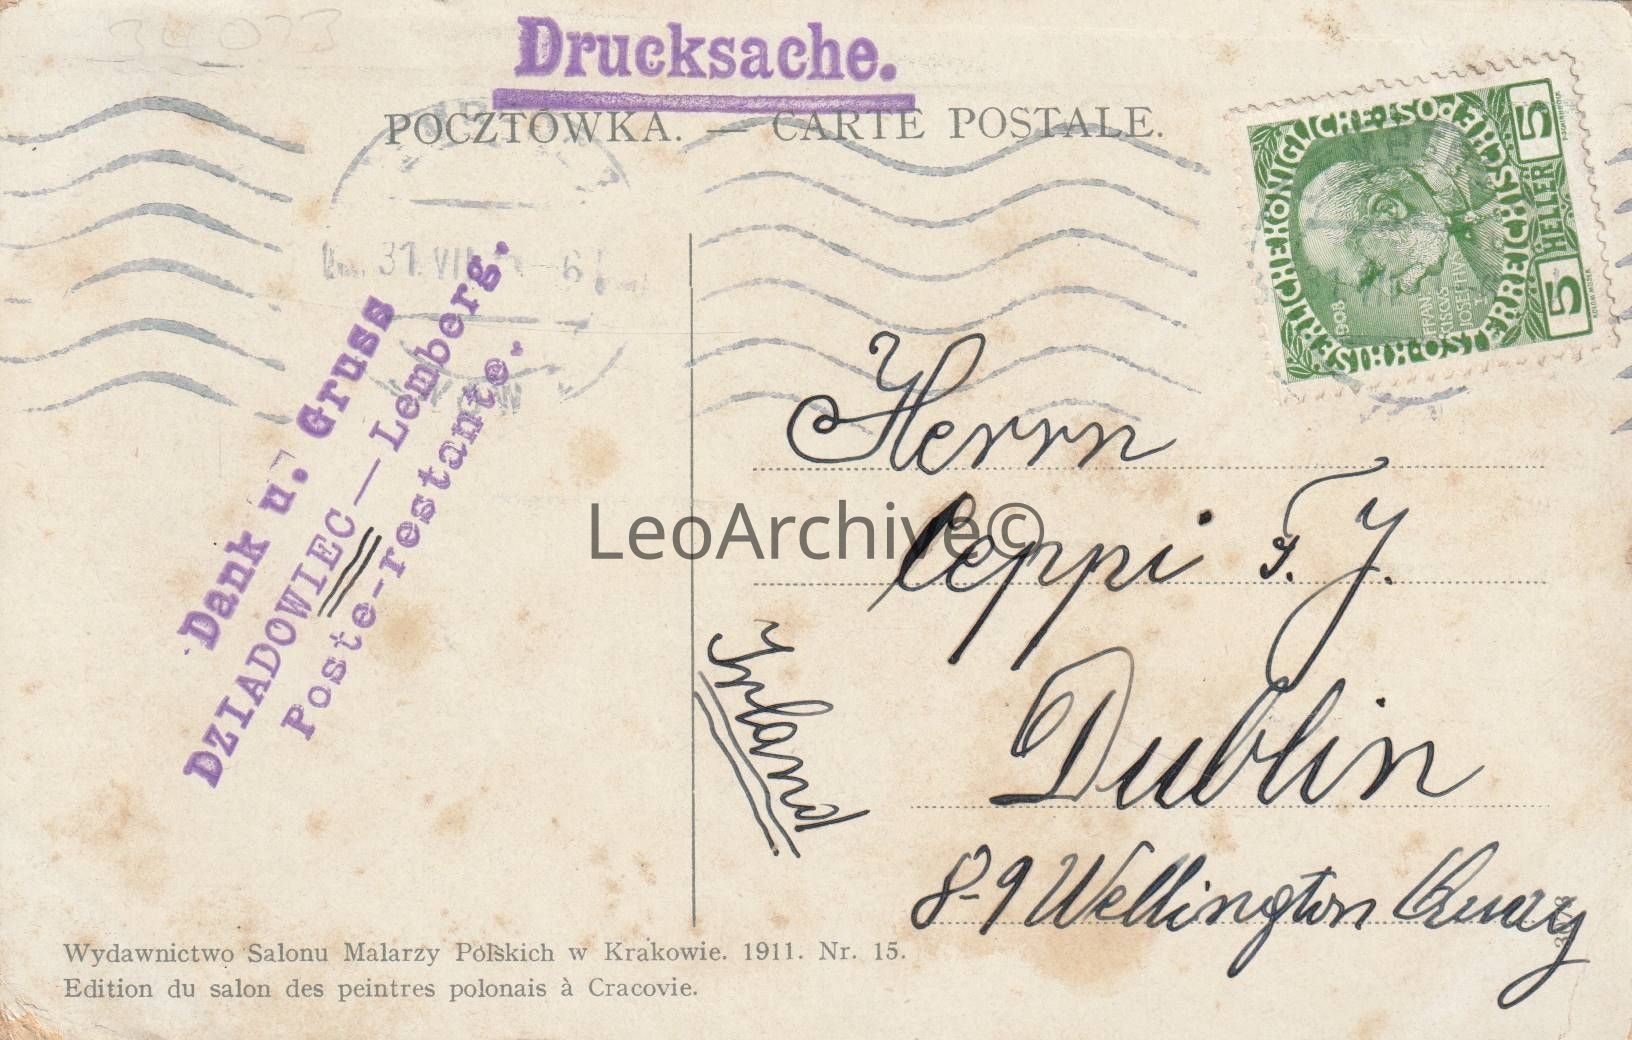 34023
Drucksache.
POCZTÓWKA. — CARTE POSTALE.
KAISERLICHE KÖNIGLICHE POST
ÖSTERREICHISCHE
1908
FRAN
CISCUS
IOSEPHVS
I
5 HELLER 5
31. VII
6
Dank u. Gruss
DZIADOWIEC — Lemberg.
Poste-restante.
Herrn
Ceppi F. J.
Dublin
8-9 Wellington Quay
Irland
LeoArchive©
Wydawnictwo Salonu Malarzy Polskich w Krakowie. 1911. Nr. 15.
Edition du salon des peintres polonais à Cracovie.